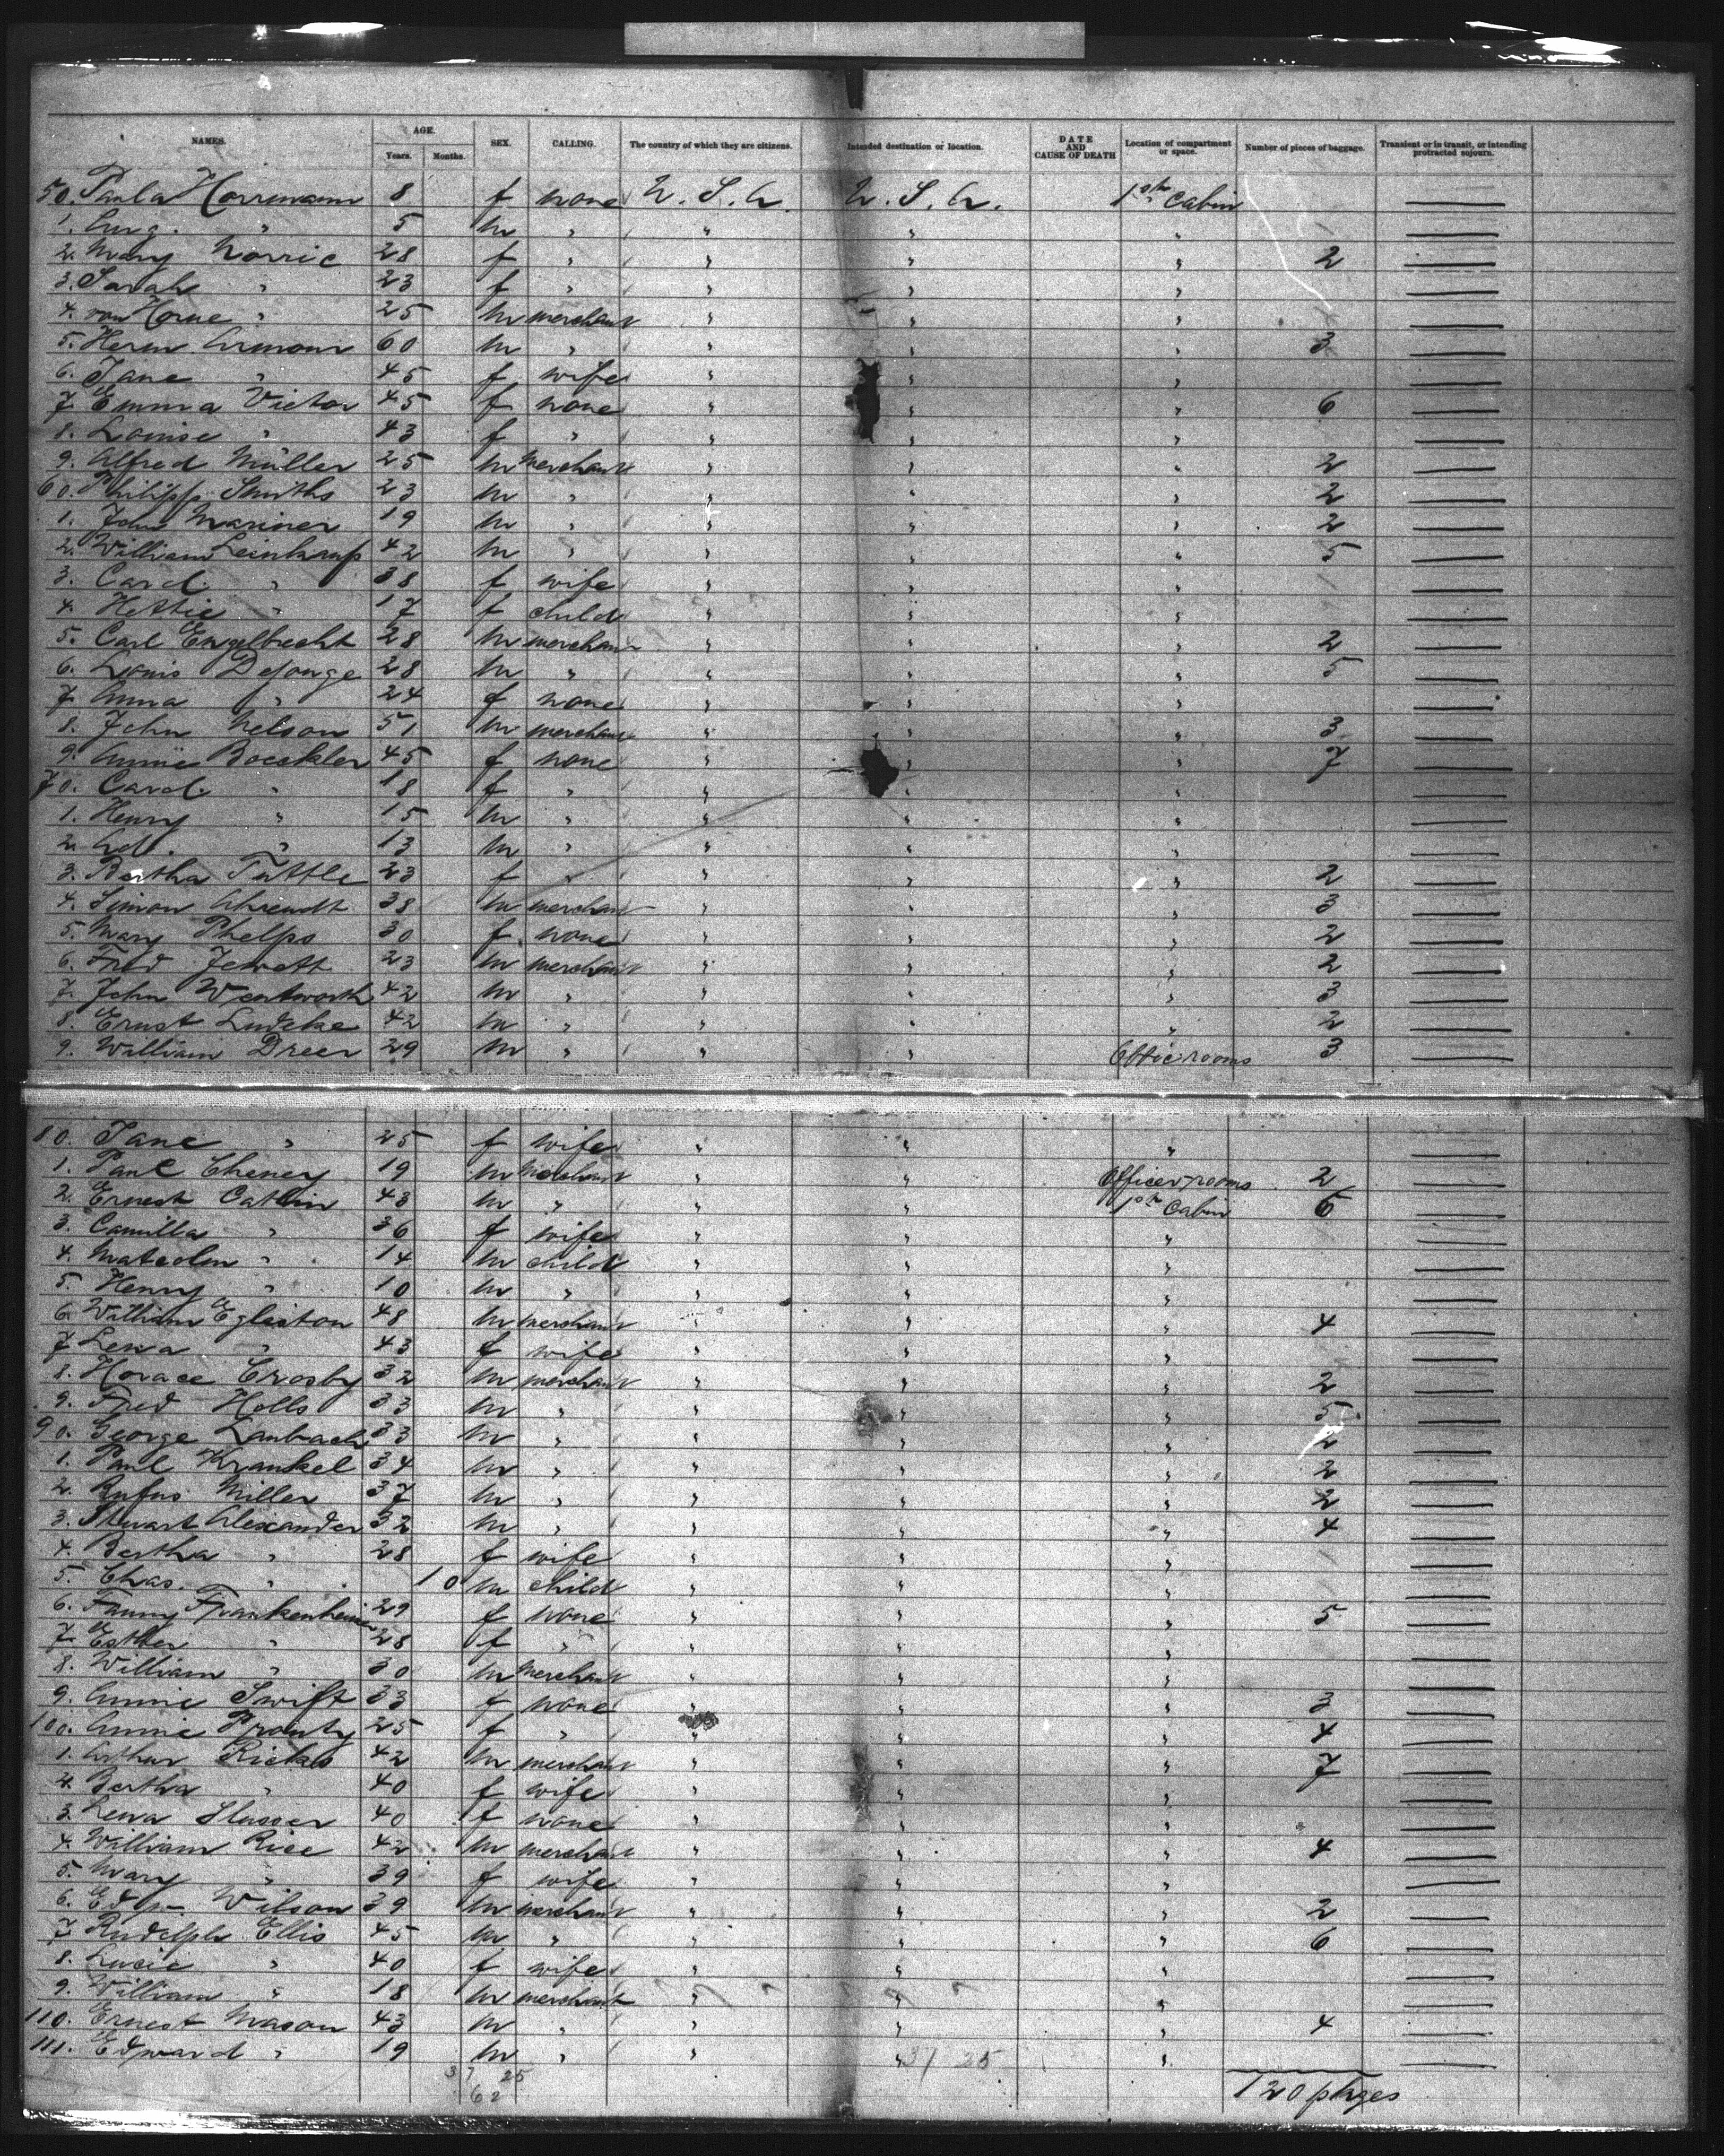 NAMES. AGE. Years. Months. SEX. CALLING. The country of which they are citizens. Intended destination or location. DATE AND CAUSE OF DEATH Location of compartment or space. Number of pieces of baggage. Transient or in transit, or intending protracted sojourn.
50. Paula Horrmann 8 f none U.S.A. U.S.A. 1st Cabin
1. Aug. " 5 m " " " "
2. Mary Norrie 28 f " " " " 2
3. Sarah " 23 f " " " "
4. van Horne " 25 m merchant " " "
5. Herm Armour 60 m " " " " 3
6. Jane " 45 f wife " " "
7. Emma Victor 45 f none " " " 6
8. Louise " 43 f " " " "
9. Alfred Müller 25 m merchant " " " 2
60. Philipp Smiths 23 m " " " " 2
1. John Mariner 19 m " " " " 2
2. William Leinkauf 42 m " " " " 5
3. Carol. " 38 f wife " " "
4. Hettie " 17 f child " " "
5. Carl Engelbrecht 28 m merchant " " " 2
6. Louis DeJonge 28 m " " " " 5
7. Anna " 24 f none " " "
8. John Nelson 51 m merchant " " " 3
9. Annie Boeckler 45 f none " " " 7
70. Carol. " 18 f " " " "
1. Henry " 15 m " " " "
2. Ad. " 13 m " " " "
3. Bertha Tuttle 23 f " " " " 2
4. Simon Ahrendt 38 m merchant " " " 3
5. Mary Phelps 30 f none " " " 2
6. Fred Jewett 23 m merchant " " " 2
7. John Wentworth 42 m " " " " 3
8. Ernst Ludeke 42 m " " " " 2
9. William Dreer 29 m " " " rooms 3
80. Jane " 25 f wife " " "
1. Paul Cheney 19 m merchant " " Officer rooms 2
2. Ernest Catlin 43 m " " " 1st Cabin 6
3. Camilla " 36 f wife " " "
4. Malcolm " 14 m child " " "
5. Henry " 10 m " " " "
6. William Egleston 48 m merchant " " " 4
7. Lena " 43 f wife " " "
8. Horace Crosby 32 m merchant " " " 2
9. Fred Holls 33 m " " " " 5
90. George Laubach 33 m " " " " 2
1. Paul Krankel 34 m " " " " 2
2. Rufus Miller 37 m " " " " 2
3. Stuart Alexander 32 m " " " " 4
4. Bertha " 28 f wife " " "
5. Chas. " 10 m child " " "
6. Fanny Frankenheimer 29 f none " " " 5
7. Esther " 28 f " " " "
8. William " 30 m merchant " " "
9. Annie Swift 33 f none " " " 3
100. Annie Prouty 25 f " " " " 4
1. Arthur Ricks 42 m merchant " " " 7
2. Bertha " 40 f wife " " "
3. Lena Slusser 40 f none " " "
4. William Rice 42 m merchant " " " 4
5. Mary " 39 f wife " " "
6. Edw. Wilson 39 m merchant " " " 2
7. Rudolph Ellis 45 m " " " " 6
8. Lucie " 40 f wife " " "
9. William " 18 m merchant " " "
110. Ernest Mason 43 m " " " " 4
111. Edward " 19 m " " " "
37 25 37 25
62
120 pkges